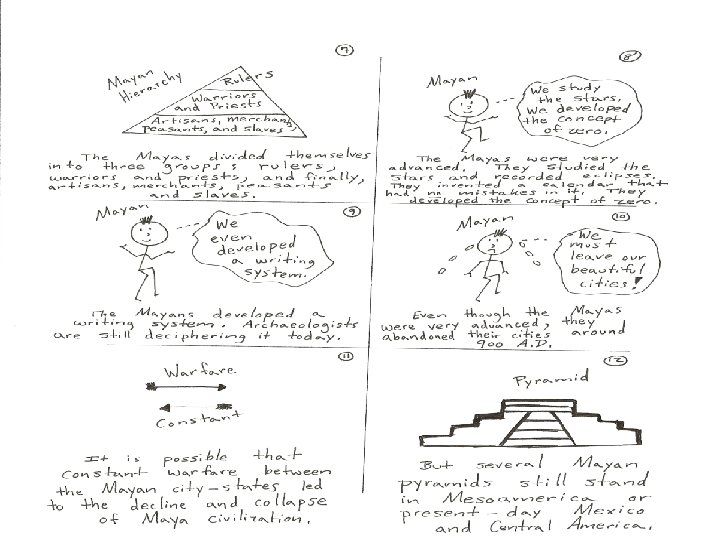 7
Mayan
Hierarchy
Rulers
Warriors
and Priests
Artisans, merchants,
peasants, and slaves
The Mayas divided themselves
into three groups; rulers,
warriors and priests, and finally,
artisans, merchants, peasants
and slaves.
8
Mayan
We study
the stars.
We developed
the concept
of zero.
The Mayas were very
advanced. They studied the
stars and recorded eclipses.
They invented a calendar that
had no mistakes in it. They
developed the concept of zero.
9
Mayan
We
even
developed
a writing
system.
The Mayans developed a
writing system. Archaeologists
are still deciphering it today.
10
Mayan
We
must
leave our
beautiful
cities!
Even though the Mayas
were very advanced, they
abandoned their cities around
900 A.D.
11
Warfare
Constant
It is possible that
constant warfare between
the Mayan city-states led
to the decline and collapse
of Maya civilization.
12
Pyramid
But several Mayan
pyramids still stand
in Mesoamerica or
present-day Mexico
and Central America.